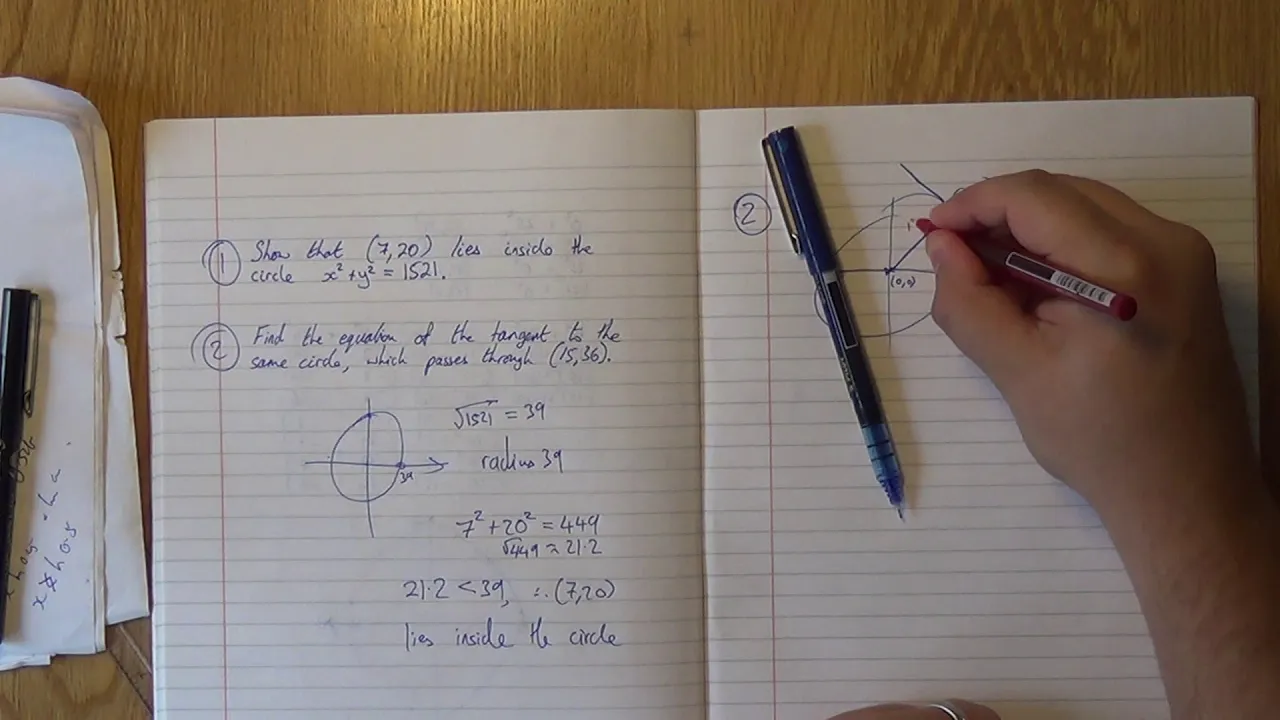 ① Show that (7,20) lies inside the
circle x² + y² = 1521.
② Find the equation of the tangent to the
same circle, which passes through (15,36).
√1521 = 39
39
radius 39
7² + 20² = 449
√449 ≈ 21.2
21.2 < 39, ∴ (7,20)
lies inside the circle
②
(0,0)